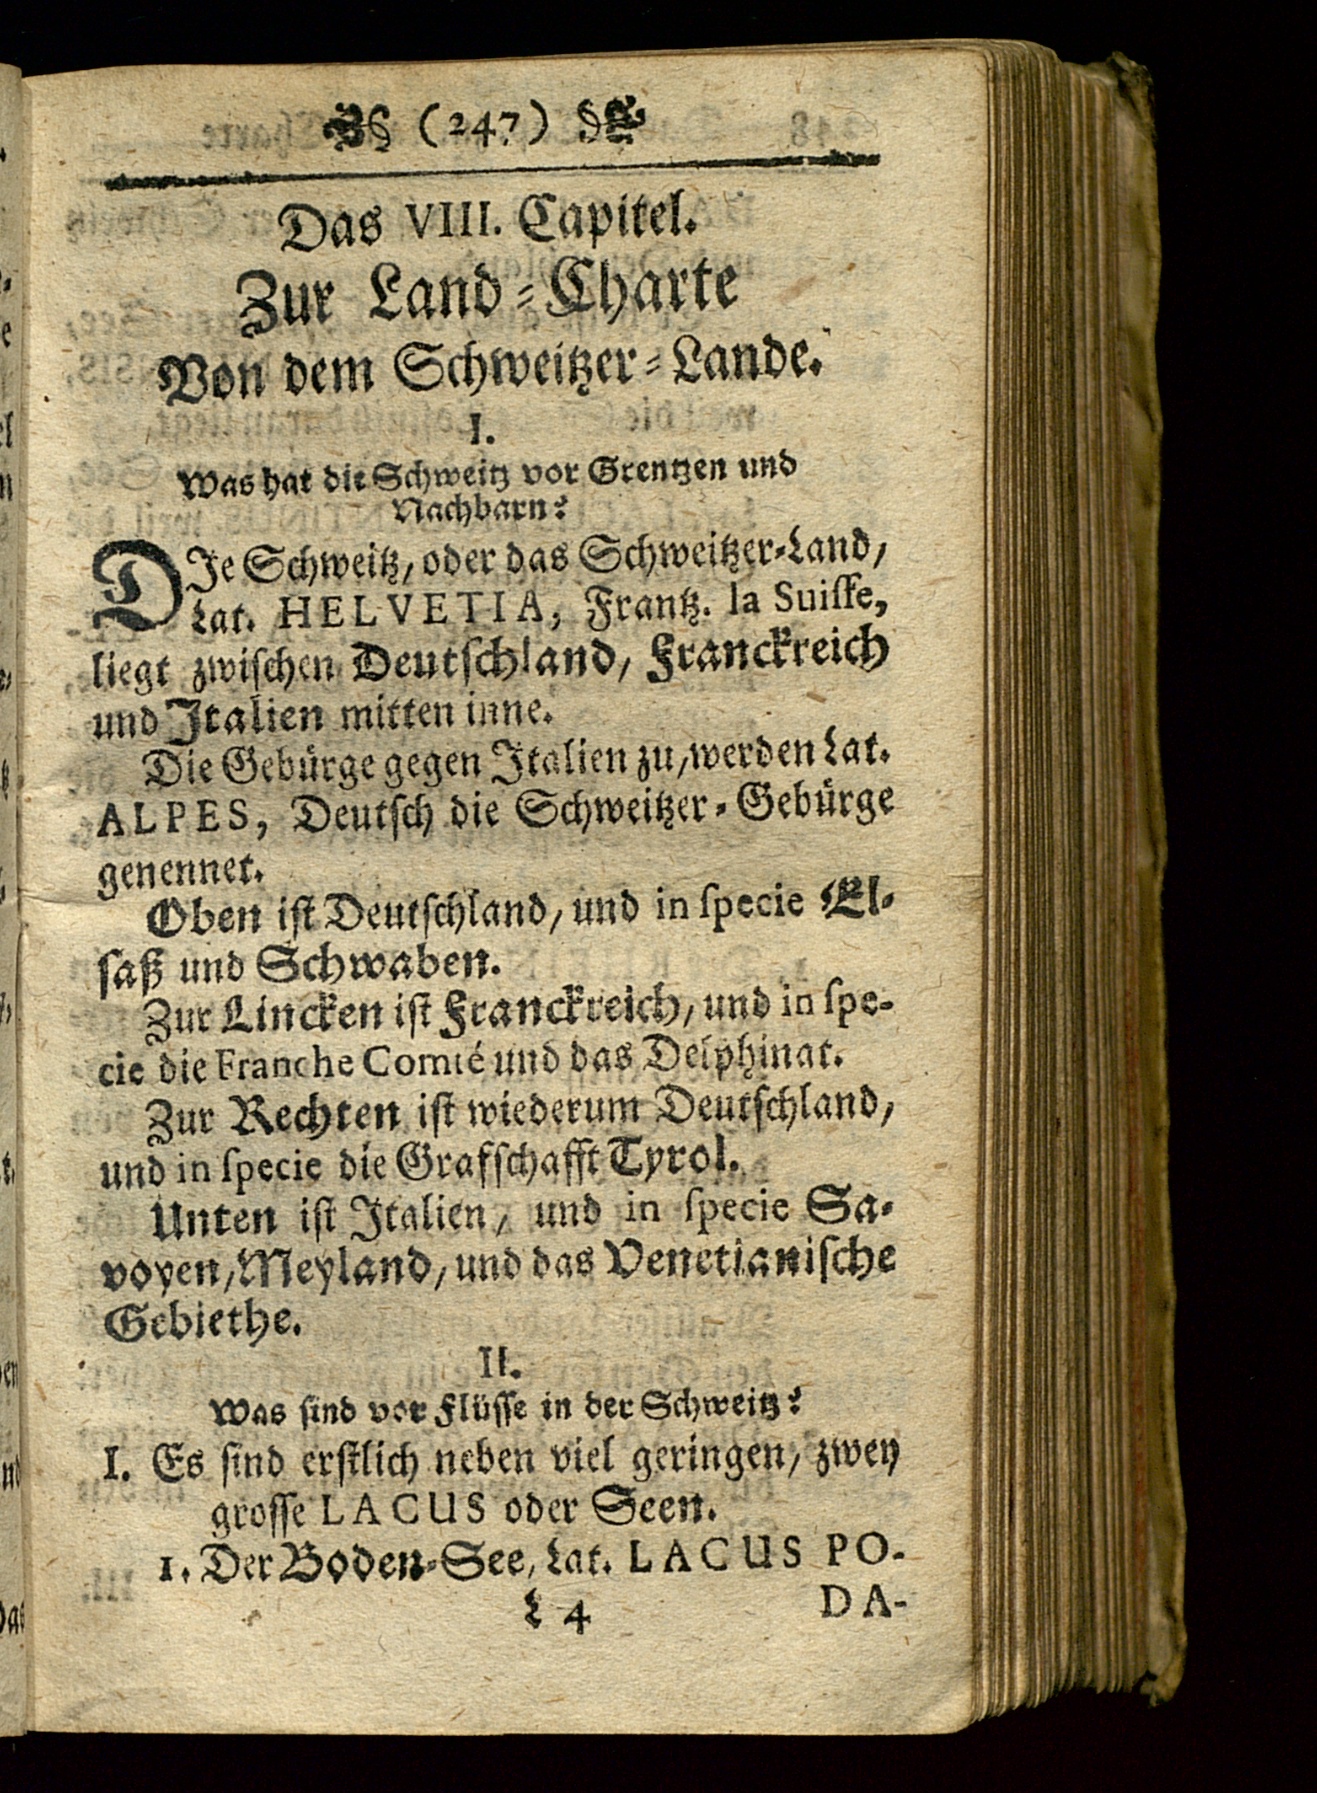 (247)
Das VIII. Capitel.
Zur Land-Charte
Von dem Schweitzer-Lande.
I.
Was hat die Schweitz vor Grentzen und
Nachbarn?
DIe Schweitz, oder das Schweitzer-Land,
Lat. HELVETIA, Frantz. la Suisse,
liegt zwischen Deutschland, Franckreich
und Italien mitten inne.
Die Gebürge gegen Italien zu, werden Lat.
ALPES, Deutsch die Schweitzer-Gebürge
genennet.
Oben ist Deutschland, und in specie El-
saß und Schwaben.
Zur Lincken ist Franckreich, und in spe-
cie die Franche Comté und das Delphinat.
Zur Rechten ist wiederum Deutschland,
und in specie die Grafschafft Tyrol.
Unten ist Italien, und in specie Sa-
voyen, Meyland, und das Venetianische
Gebiethe.
II.
Was sind vor Flüsse in der Schweitz?
I. Es sind erstlich neben viel geringen, zwey
grosse LACUS oder Seen.
1. Der Boden-See, Lat. LACUS PO-
L 4 DA-